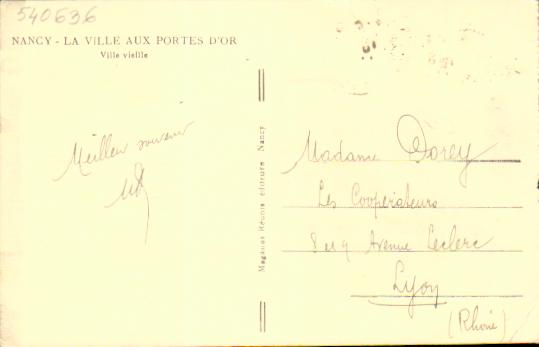 540636
NANCY - LA VILLE AUX PORTES D'OR
Ville vieille
Meilleur souvenir
Magasins Réunis éditeurs Nancy
Madame Dorey
Les Coopérateurs
8 et 9 Avenue Leclerc
Lyon
(Rhône)